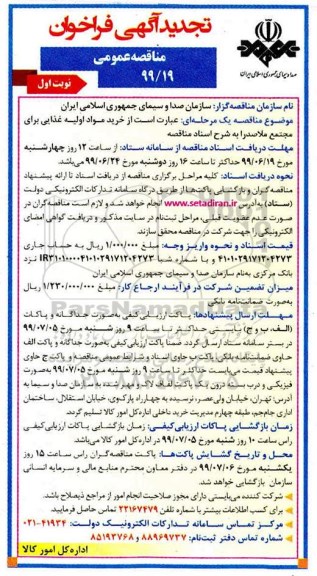 تجدید آگهی فراخوان
مناقصه عمومی
۹۹/۱۹
نوبت اول
صدا و سیمای جمهوری اسلامی ایران
نام سازمان مناقصه‌گزار: سازمان صدا و سیمای جمهوری اسلامی ایران
موضوع مناقصه یک مرحله‌ای: عبارت است از خرید مواد اولیه غذایی برای
مجتمع ملاصدرا به شرح اسناد مناقصه
مهلت دریافت اسناد مناقصه از سامانه ستاد: از ساعت ۱۲ روز چهارشنبه
مورخ ۹۹/۰۶/۱۹ حداکثر تا ساعت ۱۶ روز دوشنبه مورخ ۹۹/۰۶/۲۴ می‌باشد.
نحوه دریافت اسناد: کلیه مراحل برگزاری مناقصه از دریافت اسناد تا ارائه پیشنهاد
مناقصه‌گران و بازگشایی پاکت‌ها از طریق درگاه سامانه تدارکات الکترونیکی دولت
(ستاد) به آدرس www.setadiran.ir انجام خواهد شد و لازم است مناقصه‌گران در
صورت عدم عضویت قبلی، مراحل ثبت‌نام در سایت مذکور و دریافت گواهی امضای
الکترونیکی را جهت شرکت در مناقصه محقق سازند.
قیمت اسناد و نحوه واریز وجه: مبلغ ۱/۰۰۰/۰۰۰ ریال به حساب جاری
۴۱۰۱۰۲۹۱۷۱۲۰۴۲۷۳ و با شماره شبا نزد
بانک مرکزی به‌نام سازمان صدا و سیمای جمهوری اسلامی ایران
میزان تضمین شرکت در فرآیند ارجاع کار: مبلغ ۱/۲۳۰/۰۰۰/۰۰۰ ریال
به‌صورت ضمانت‌نامه بانکی
مهلت ارسال پیشنهادها: پاکت ارزیابی کیفی به‌صورت جداگانه و پاکات
(الف، ب و ج) بایستی حداکثر تا ساعت ۹ روز شنبه مورخ ۹۹/۰۷/۰۵
در بستر سامانه ستاد ارسال گردد ضمناً پاکت ارزیابی کیفی به‌صورت جداگانه و پاکت الف
حاوی ضمانتنامه بانکی پاکت ب حاوی اسناد و شرایط عمومی مناقصه و پاکت ج حاوی
پیشنهاد قیمت می‌بایست حداکثر تا ساعت ۹ روز شنبه مورخ ۹۹/۰۷/۰۵ به‌صورت
فیزیکی و درب بسته درون یک پاکت لفاف لاک و مهر شده به سازمان صدا و سیما به
آدرس: تهران، خیابان ولی‌عصر، نرسیده به چهارراه پارک‌وی، خیابان استقلال، ساختمان
اداری جام‌جم، طبقه چهارم مدیریت خرید داخلی اداره‌کل امور کالا تسلیم گردد.
زمان بازگشایی پاکات ارزیابی‌کیفی: زمان بازگشایی پاکات ارزیابی‌کیفی
راس ساعت ۱۰ روز شنبه مورخ ۹۹/۰۷/۰۵ در اداره‌کل امور کالا می‌باشد.
محل و تاریخ گشایش پاکت‌ها: پاکت مناقصه‌گران راس ساعت ۱۵ روز
یکشنبه مورخ ۹۹/۰۷/۰۶ در دفتر معاون محترم منابع مالی و سرمایه انسانی
سازمان بازگشایی خواهد شد.
شرکت کننده می‌بایستی دارای مجوز صلاحیت انجام امور از مراجع ذیصلاح باشد.
برای کسب اطلاعات بیشتر با شماره تلفن ۲۲۱۶۷۴۷۹ تماس حاصل فرمایید.
مرکز تماس سامانه تدارکات الکترونیک دولت: ۴۱۹۳۴-۰۲۱
شماره تماس دفتر ثبت‌نام: ۸۸۹۶۹۷۳۷ و ۸۵۱۹۳۷۶۸
اداره‌کل امور کالا